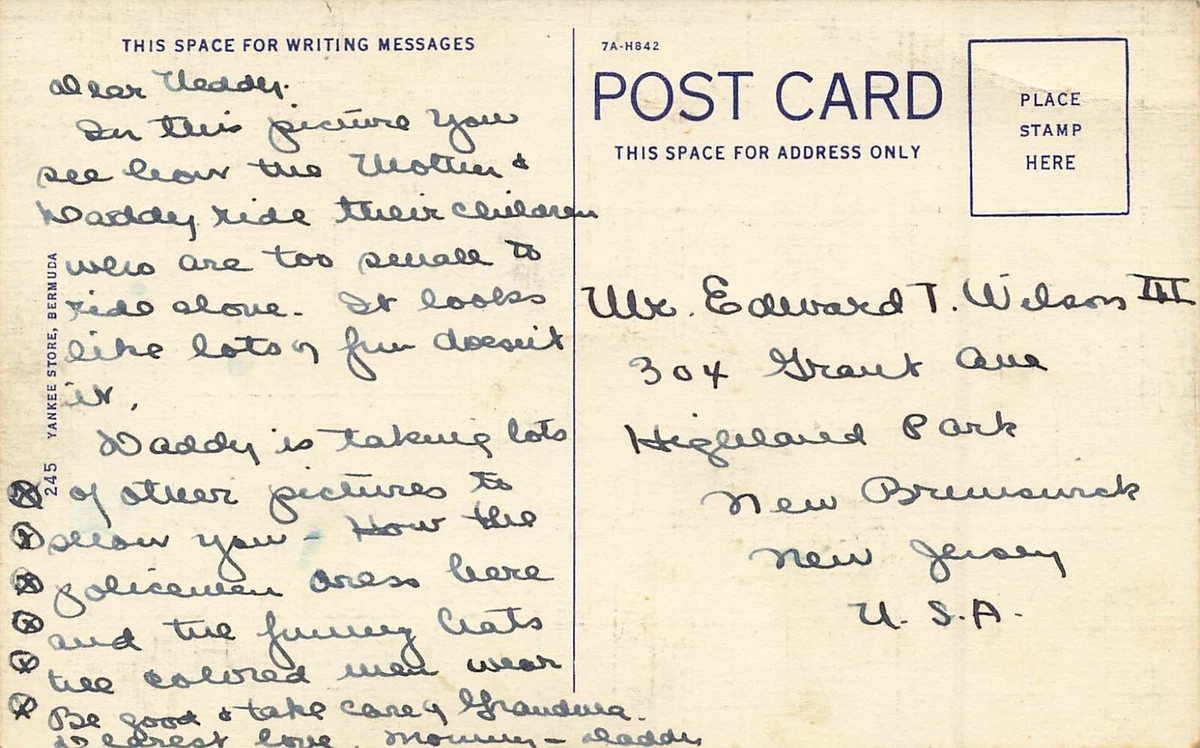 THIS SPACE FOR WRITING MESSAGES
Dear Teddy.
In this picture you
see how the Mother &
Daddy ride their children
who are too small to
ride alone. It looks
like lots of fun doesn't
it.
Daddy is taking lots
of other pictures to
show you - How the
policemen dress here
and the funny hats
the colored men wear
Be good & take care of Grandma.
Dearest love. Mommy - Daddy
245 YANKEE STORE, BERMUDA
7A-H842
POST CARD
THIS SPACE FOR ADDRESS ONLY
PLACE
STAMP
HERE
Mr. Edward T. Wilson III
304 Grant Ave
Highland Park
New Brunswick
New Jersey
U. S. A.